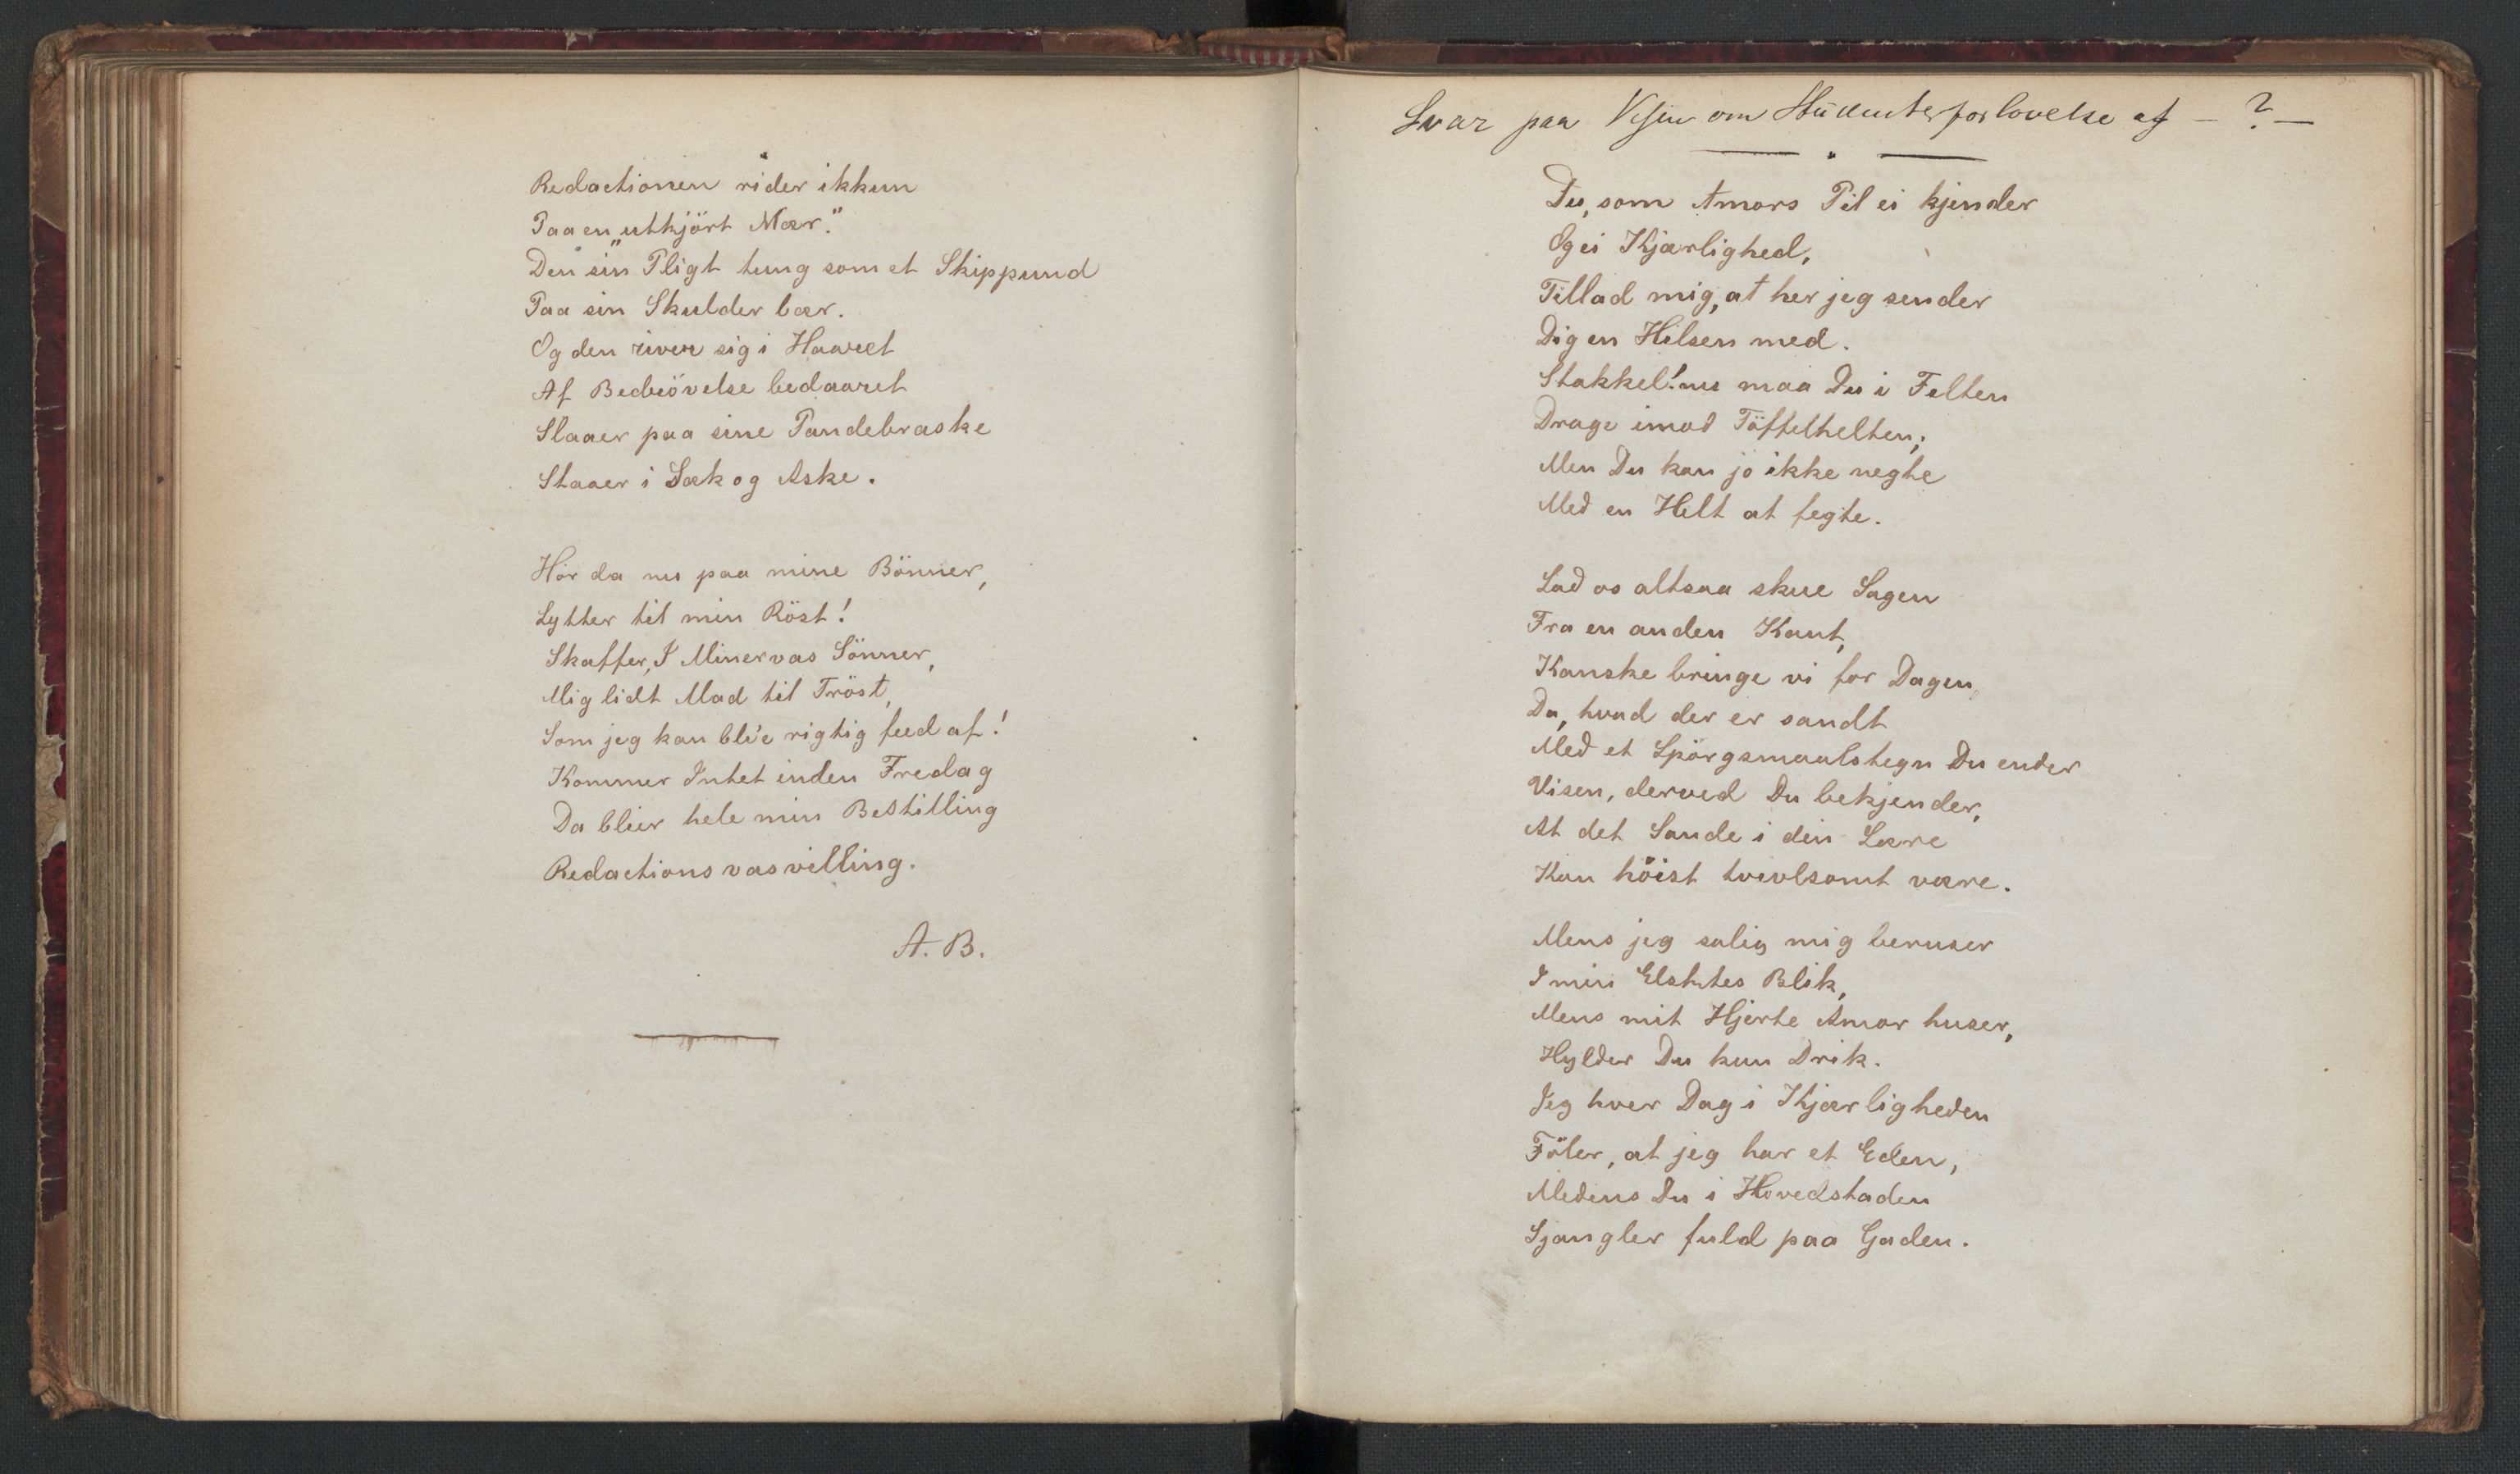 Redactionen rider ikkun
Paa en "utkjört Mær."
Den sin Pligt tung som et Skippund
Paa sin Skulder bær.
Og den river sig i Haaret
Af Bedrövelse bedaaret
Slaaer paa sine Pandebraske
Staaer i Sæk og Aske.
Hör da nu paa mine Bönner,
Lytter til min Röst!
Skaffer, I Minervas Sönner,
Mig lidt Mad til Tröst,
Som jeg kan bli'e rigtig feed af!
Kommer Intet inden Fredag
Da blier hele min Bestilling
Redactionsvasvilling.
A. B.
Svar paa Visen om Studenterforlovelse af - ? -
Du, som Amors Piil ei kjender
Og ei Kjærlighed,
Tillad mig, at her jeg sender
Dig en Hilsen med.
Stakkel! nu maa Du i Felten
Drage imod Töffelhelten;
Men Du kan jo ikke negte
Med en Helt at fegte.
Lad os altsaa skue Sagen
Fra en anden Kant,
Kanske bringe vi for Dagen
Da, hvad der er sandt
Med et Spörgsmaalstegn Du ender
Visen, derved Du bekjender,
At det Sande i din Lære
Kan höist tvevlsomt være.
Mens jeg salig mig beruser
I min Elsktes Blik,
Mens mit Hjerte Amor huser,
Hylder Du kun Drik.
Jeg hver Dag i Kjærligheden
Föler, at jeg har et Eden,
Medens Du i Hovedstaden
Sjangler fuld paa Gaden.